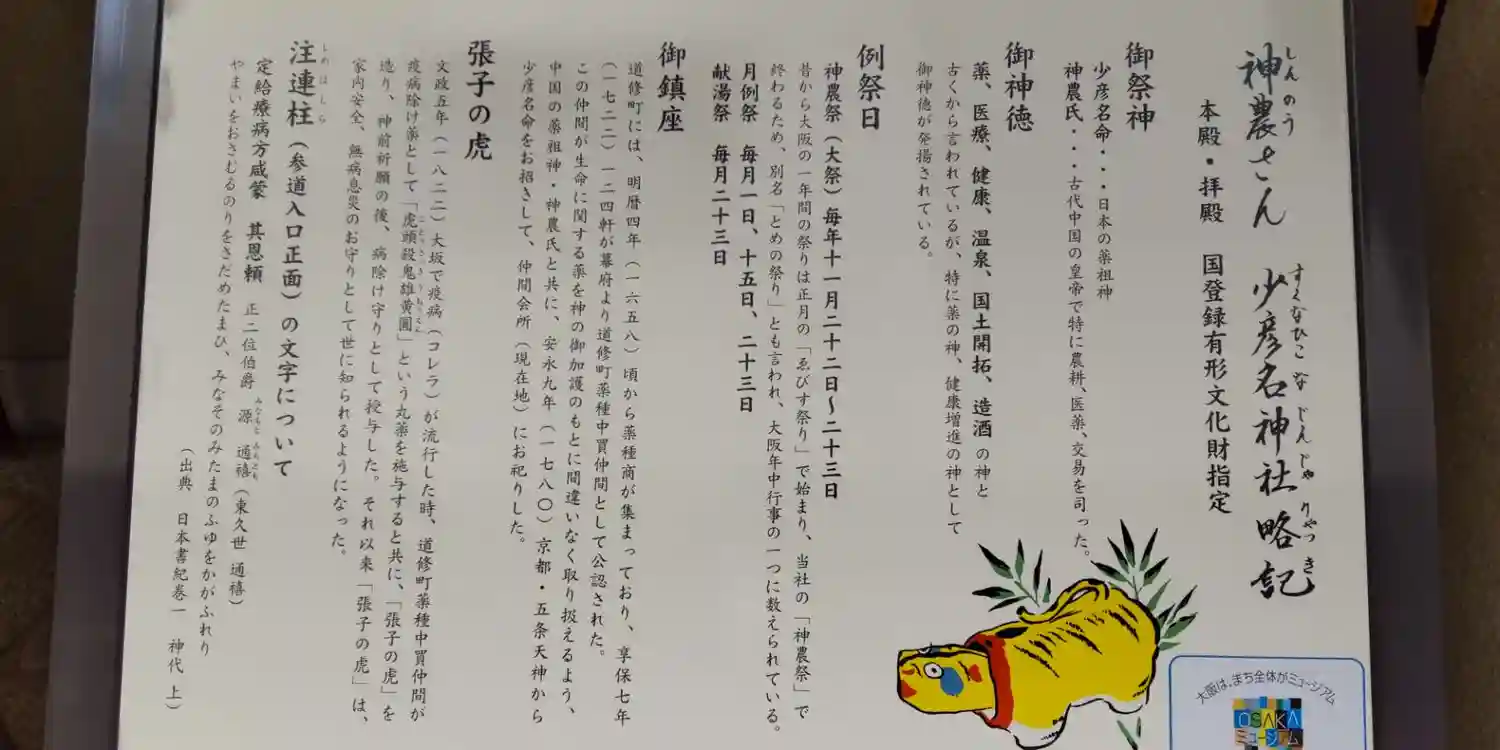 神農さん 少彦名神社略記
本殿・拝殿 国登録有形文化財指定
御祭神
少彦名命・・・日本の薬祖神
神農氏・・・古代中国の皇帝で特に農耕、医薬、交易を司った。
御神徳
薬、医療、健康、温泉、国土開拓、造酒の神と
古くから言われているが、特に薬の神、健康増進の神として
御神徳が発揚されている。
例祭日
神農祭（大祭）毎年十一月二十二日～二十三日
昔から大阪の一年間の祭りは正月の「ゑびす祭り」で始まり、当社の「神農祭」で
終わるため、別名「とめの祭り」とも言われ、大阪年中行事の一つに数えられている。
月例祭 毎月一日、十五日、二十三日
献湯祭 毎月二十三日
御鎮座
道修町には、明暦四年（一六五八）頃から薬種商が集まっており、享保七年
（一七二二）一二四軒が幕府より道修町薬種中買仲間として公認された。
この仲間が生命に関する薬を神の御加護のもとに間違いなく取り扱えるよう、
中国の薬祖神・神農氏と共に、安永九年（一七八〇）京都・五条天神から
少彦名命をお招きして、仲間会所（現在地）にお祀りした。
張子の虎
文政五年（一八二二）大坂で疫病（コレラ）が流行した時、道修町薬種中買仲間が
疫病除け薬として「虎頭殺鬼雄黄圓」という丸薬を施与すると共に、「張子の虎」を
造り、神前祈願の後、病除け守りとして授与した。それ以来「張子の虎」は、
家内安全、無病息災のお守りとして世に知られるようになった。
注連柱（参道入口正面）の文字について
定給療病方咸蒙 其恩頼 正二位伯爵 源 通禧（東久世 通禧）
やまいをおさむるのりをさだめたまひ、みなそのみたまのふゆをかがふれり
（出典 日本書紀巻一 神代 上）
大阪は、まち全体がミュージアム
OSAKA
ミュージアム